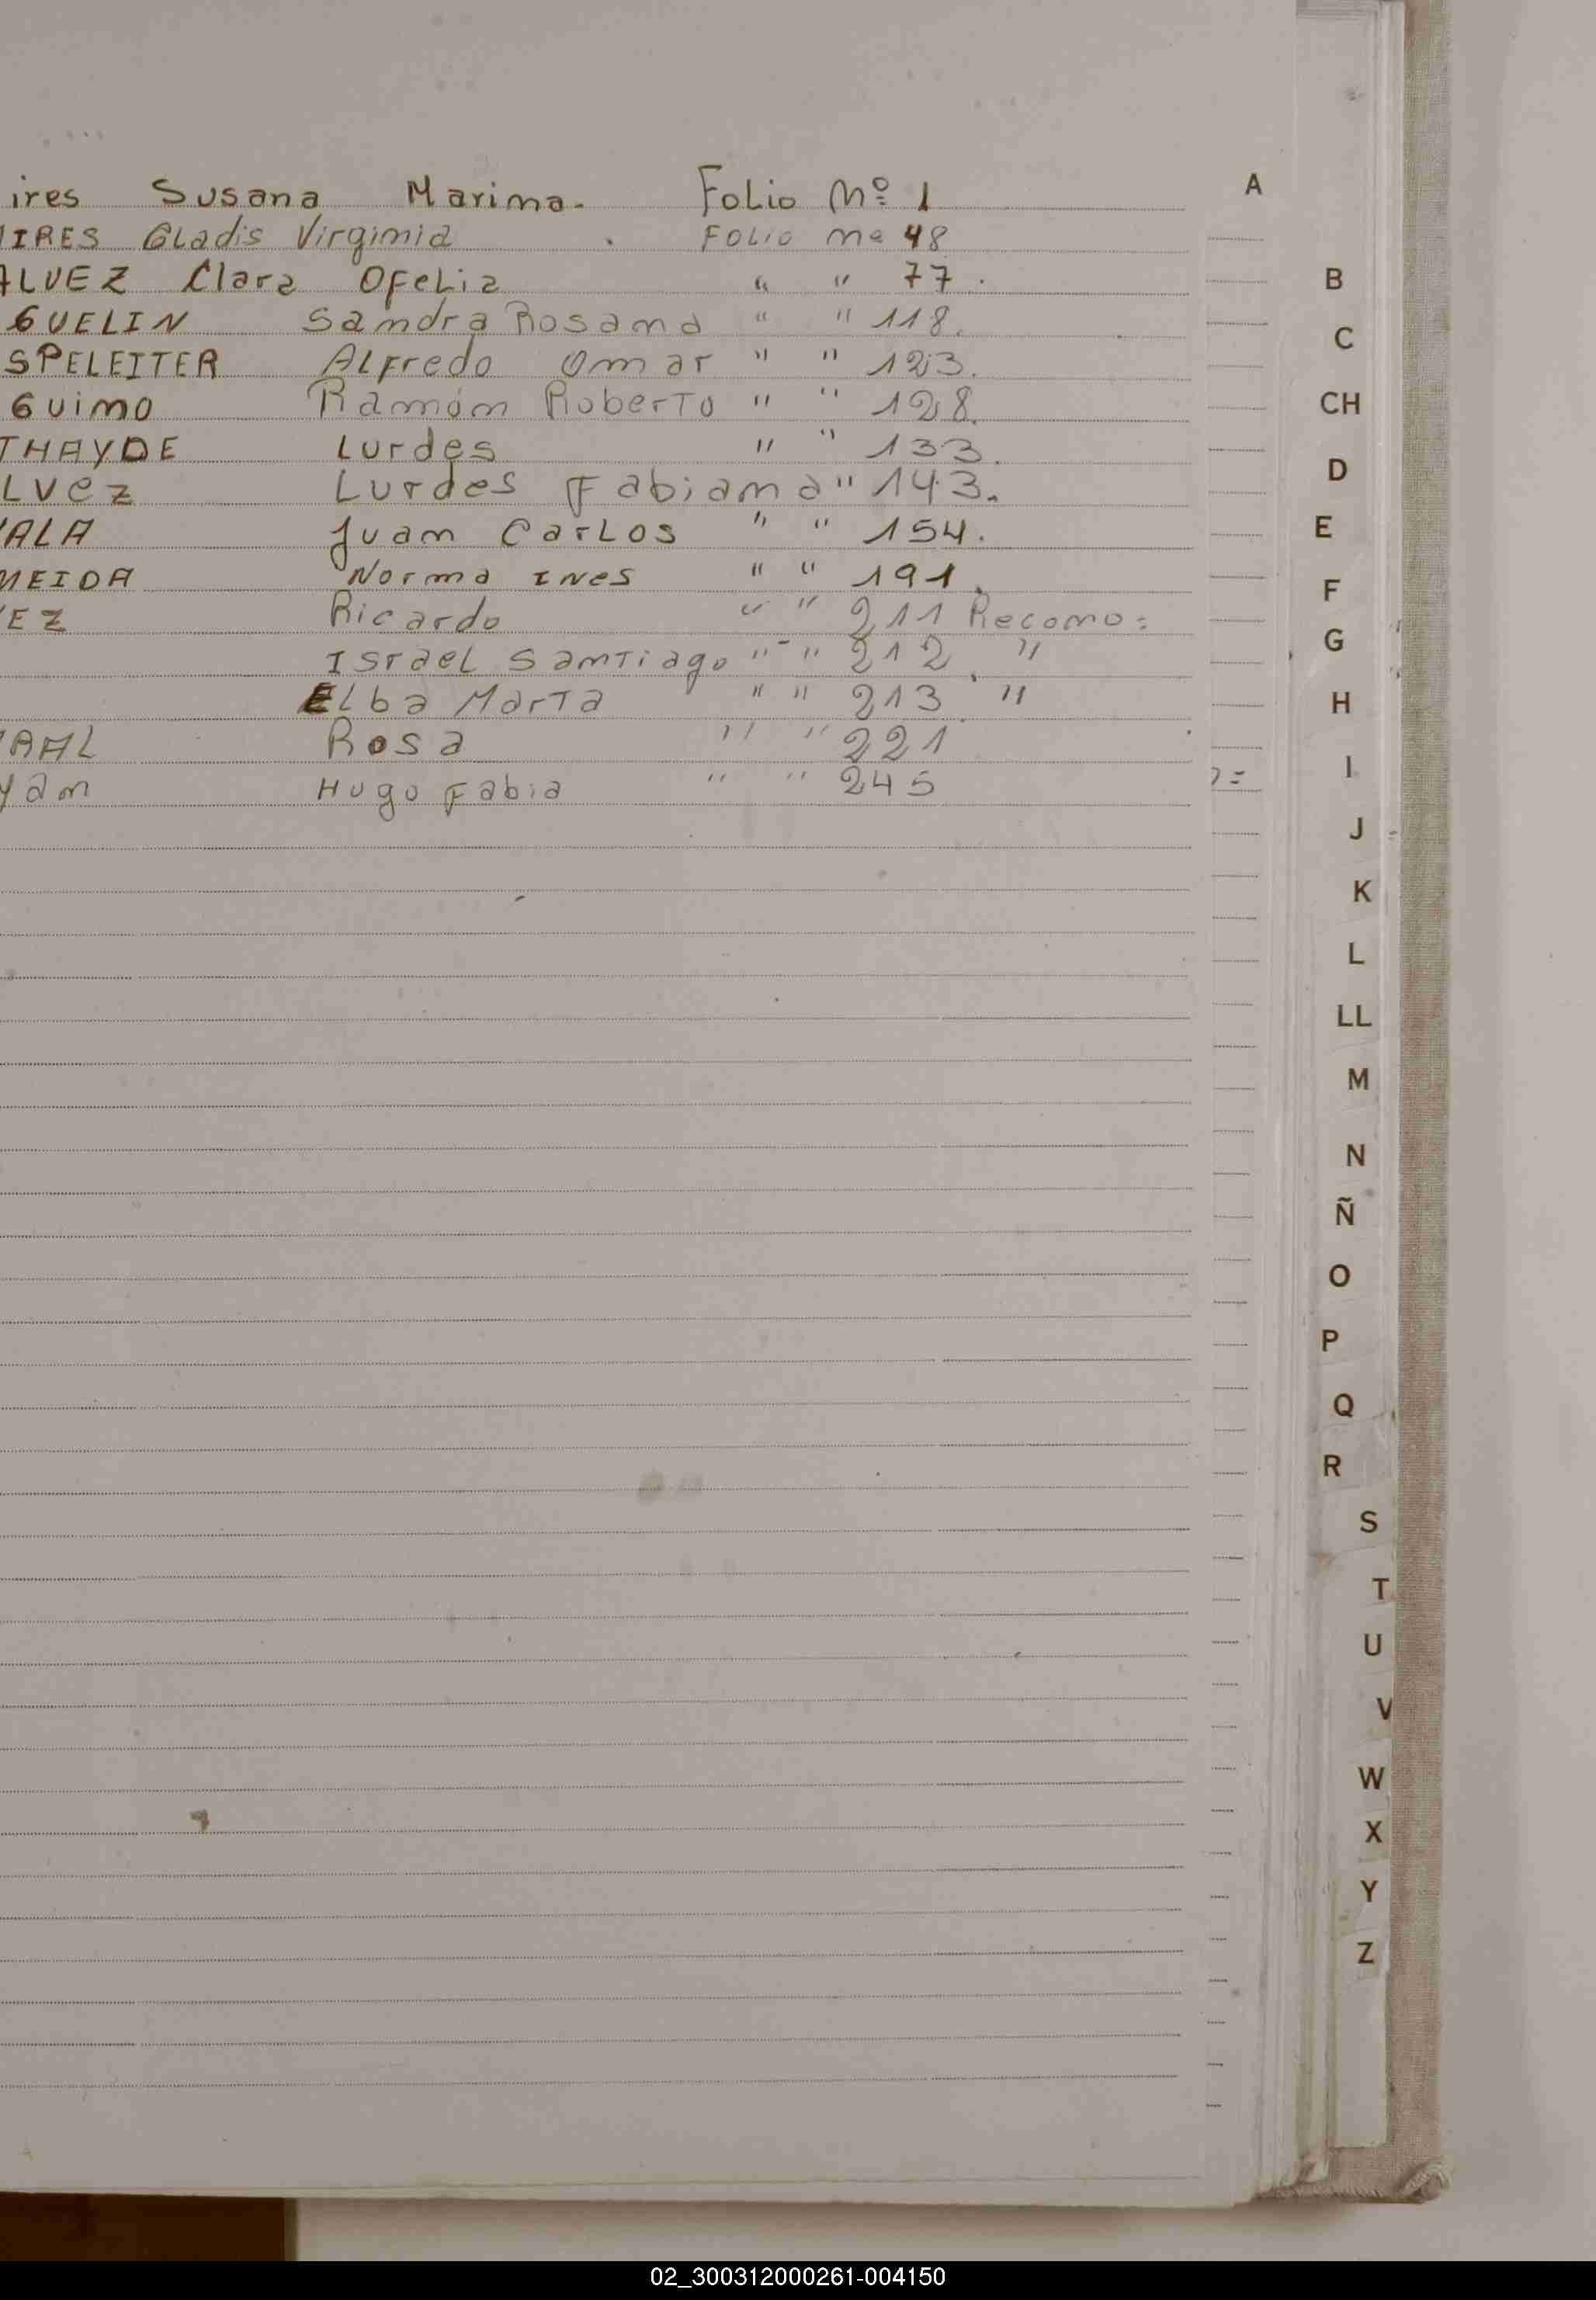 ires Susana Marina. Folio Nº 1
IRES Gladis Virginia . Folio Nº 48
ALVEZ Clara Ofelia " " 77.
GUELIN Sandra Rosana " " 118.
SPELEITER Alfredo Omar " " 123.
Guino Ramón Roberto " " 128.
THAYDE Lurdes " " 133.
Lvez Lurdes Fabiana " 143.
ALA Juan Carlos " " 154.
MEIDA Norma Ines " " 191.
EZ Ricardo " " 211 Recono:
Israel Santiago " " 212. "
Elba Marta " " 213 "
AAL Rosa " " 221
yan Hugo Fabia " " 245
A
B
C
CH
D
E
F
G
H
I
J
K
L
LL
M
N
Ñ
O
P
Q
R
S
T
U
V
W
X
Y
Z
02_300312000261-004150